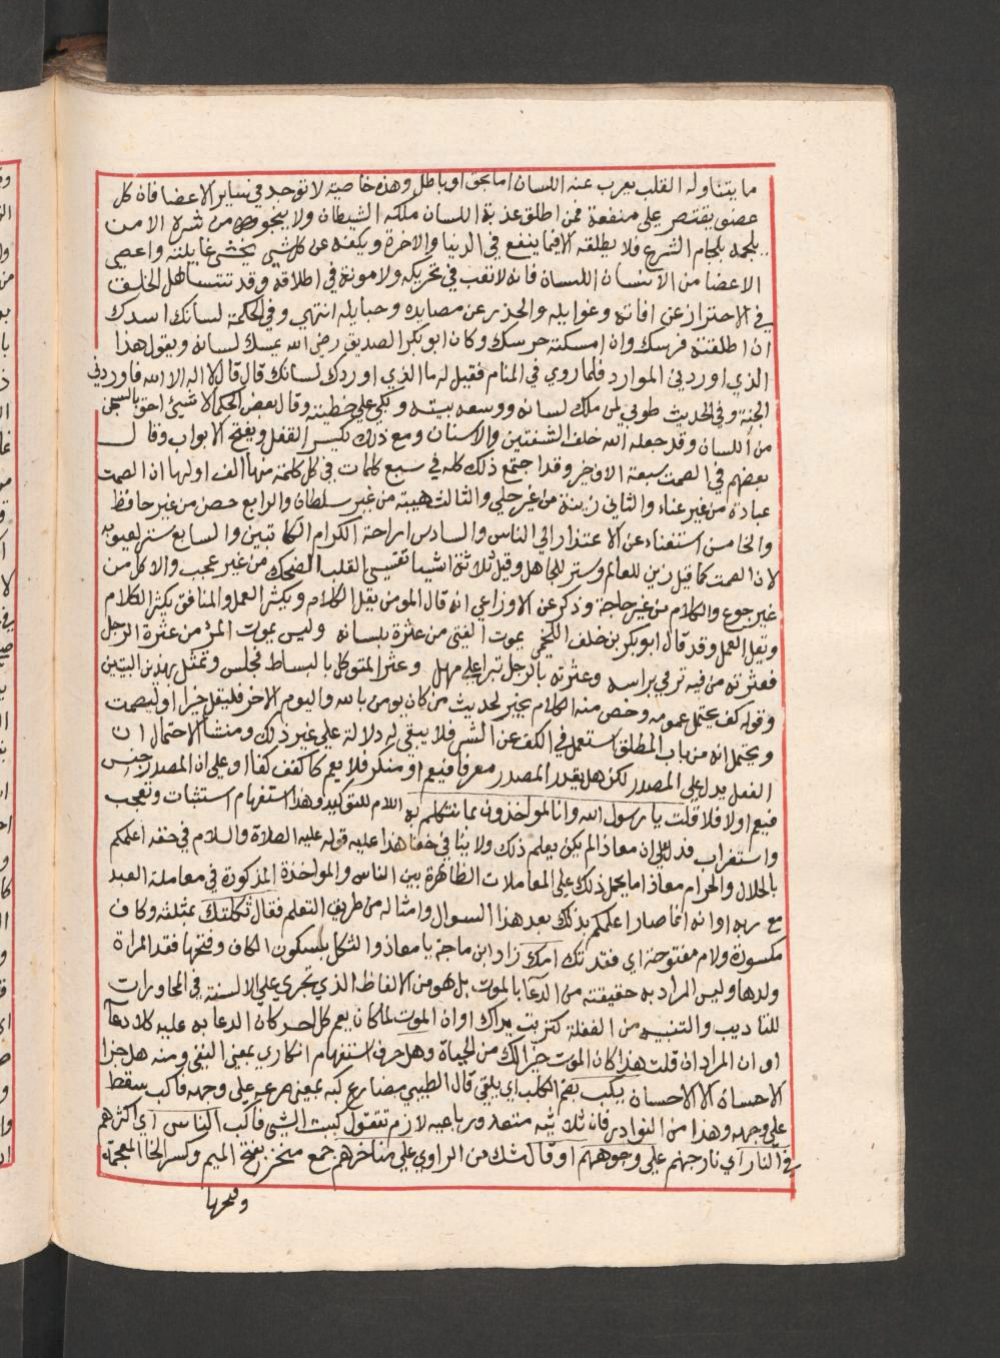 ما يتناوله القلب يعرب عنه اللسان اما بحق او باطل وهذه خاصيه لا توجد في ساير الاعضا فان كل
عضو يقتصر على منفعة فمن اطلق عذبة اللسان ملكه الشيطان ولا ينجو من شره الا من
يلجمه بلجام الشرع فلا يطلقه الا فيما ينفع في الدنيا والاخرة ويكفه عن كل شي يخشى غايلته واعصى
الاعضا من الانسان اللسان فانه لا تعب في تحريكه ولا مونة في اطلاقه وقد تتساهل الخلق
في الاحتراز عن افاته وغوايله والحذر عن مصايده وحبايله انتهي وفي الحكمة لسانك اسدك
ان اطلقته فرسك وان امسكته حرسك وكان ابو بكر الصديق رضي الله يمسك لسانه ويقول هذا
الذي اوردني الموارد فلما روي في المنام فقيل له ما الذي اوردك لسانك قال قال لا اله الا الله فاوردني
الجنة وفي الحديث طوبي لمن ملك لسانه ووسعه بيته وبكي علي خطيئته وقال بعض الحكما لا شيئ احق بالسجن
من اللسان وقد جعله الله خلف الشفتين والاسنان ومع ذلك يكسر القفل ويفتح الابواب وقال
بعضهم في الصمت سبعة الاف خير وقد اجتمع ذلك كله في سبع كلمات في كل كلمة منها الف اولها ان الصمت
عبادة من غير عناء والثاني زينة من غير حلي والثالث هيبة من غير سلطان والرابع حصن من غير حافظ
والخامس استغناء عن الاعتذار الي الناس والسادس اراحة الكرام الكاتبين والسابع ستر لعيوبه
لان الصمت كما قيل زين للعالم وستر للجاهل وقيل ثلاثة اشيا تقسي القلب الضحك من غير عجب والاكل من
غير جوع والكلام من غير حاجة وذكر عن الاوزاعي انه قال المومن يقل الكلام ويكثر العمل والمنافق يكثر الكلام
ويقل العمل وقد قال ابو بكر بن خلف اللخمي يموت الفتى من عثرة بلسانه وليس يموت المرؤ من عثرة الرجل
فعثرته من فيه ترمي براسه وعثرته بالرجل تبرا علي مهل وعثر المتوكل بالبساط فجلس وتمثل بهذين البيتين
وقوله كف يحتمل عمومه وخص منه الكلام بخير لحديث من كان يومن بالله واليوم الاخر فليقل خيرا او ليصمت
ويحتمل انه من باب المطلق استعمل في الكف عن الشر فلا يبقى له دلالة علي غير ذلك ومنشا الاحتمال ان
الفعل يدل على المصدر لكن هل يقدر المصدر معرفا فيعم او منكر فلا يعم كاكفف كفا او علي ان المصدر جنس
فيعم اولا فلا قلت يا رسول الله وانا لمواخذون بما نتكلم به اللام للتوكيد وهذا استفهام استثبات وتعجب
واستغراب فدل على ان معاذا لم يكن يعلم ذلك ولا ينافي خفا هذا عليه قوله عليه الصلاة والسلام في حقه اعلمكم
بالحلال والحرام معاذ اما يحمل ذلك على المعاملات الظاهرة بين الناس والمواخذة المذكورة في معاملة العبد
مع ربه او انه انما صار اعلمكم بذلك بعد هذا السوال وامثاله من طريق التعلم فقال ثكلتك بمثلثه وكاف
مكسورة ولام مفتوحة اي فقدتك امك زاد ابن ماجة يا معاذ والثكل بسكون الكاف وفتحها فقد المراة
ولدها وليس المراد به حقيقته من الدعا بالموت بل هو من الالفاظ الذي تجري علي الالسنة في المحاورات
للتاديب والتنبيه من الغفلة كتربت يداك او ان الموت لما كان يعم كل احد كان الدعا به عليه كلا دعا
او ان المراد ان قلت هذا كان الموت خيرا لك من الحياة وهل حرف استفهام انكاري بمعنى النفي ومنه هل جزا
الاحسان الا الاحسان يكب بضم الكاف اي يلقي قال الطيبي مضارع كبه بمعنى صرعه علي وجهه فاكب سقط
علي وجهه وهذا من النوادر فان ثلاثيه متعد ورباعيه لازم تقول كببت الشي فاكب الناس اي اكثرهم
في النار اي نار جهنم علي وجوههم او قال شك من الراوي علي مناخرهم جمع منخر بفتح الميم وكسر الخا المعجمة
وفتحها